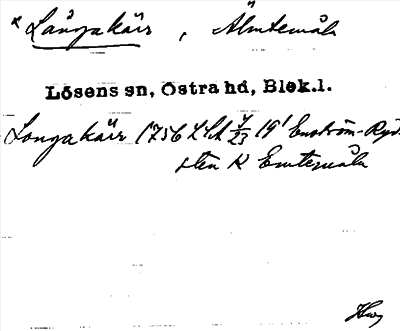 * Långakärr, Älmtemåla
Lösens sn, Östra hd, Blek.l.
Longakärr 1756 LSA 7/23 19¹ Enström-Ryd-
sten K Emtemåla